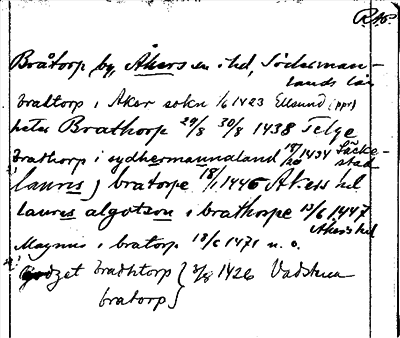 Råp.
Bråtorp by, Åkers sn o hd, Söderman-
lands län
brattorp i Aker sokn 1/6 1423 Ellsund (ppr)
heter Brathorp 29/8 30/8 1438 Telge
brathorp i sydhermannaland 18/10 1434 Täcke-
stad
laures i bratorpe 18/1 1446 Akers hd
laures algotson i brathorpe 13/6 1447
Akershd
Magnus i bratorp 13/6 1471 n. o.
godzet brathtorp { 3/8 1426 Vadstena
bratorp }